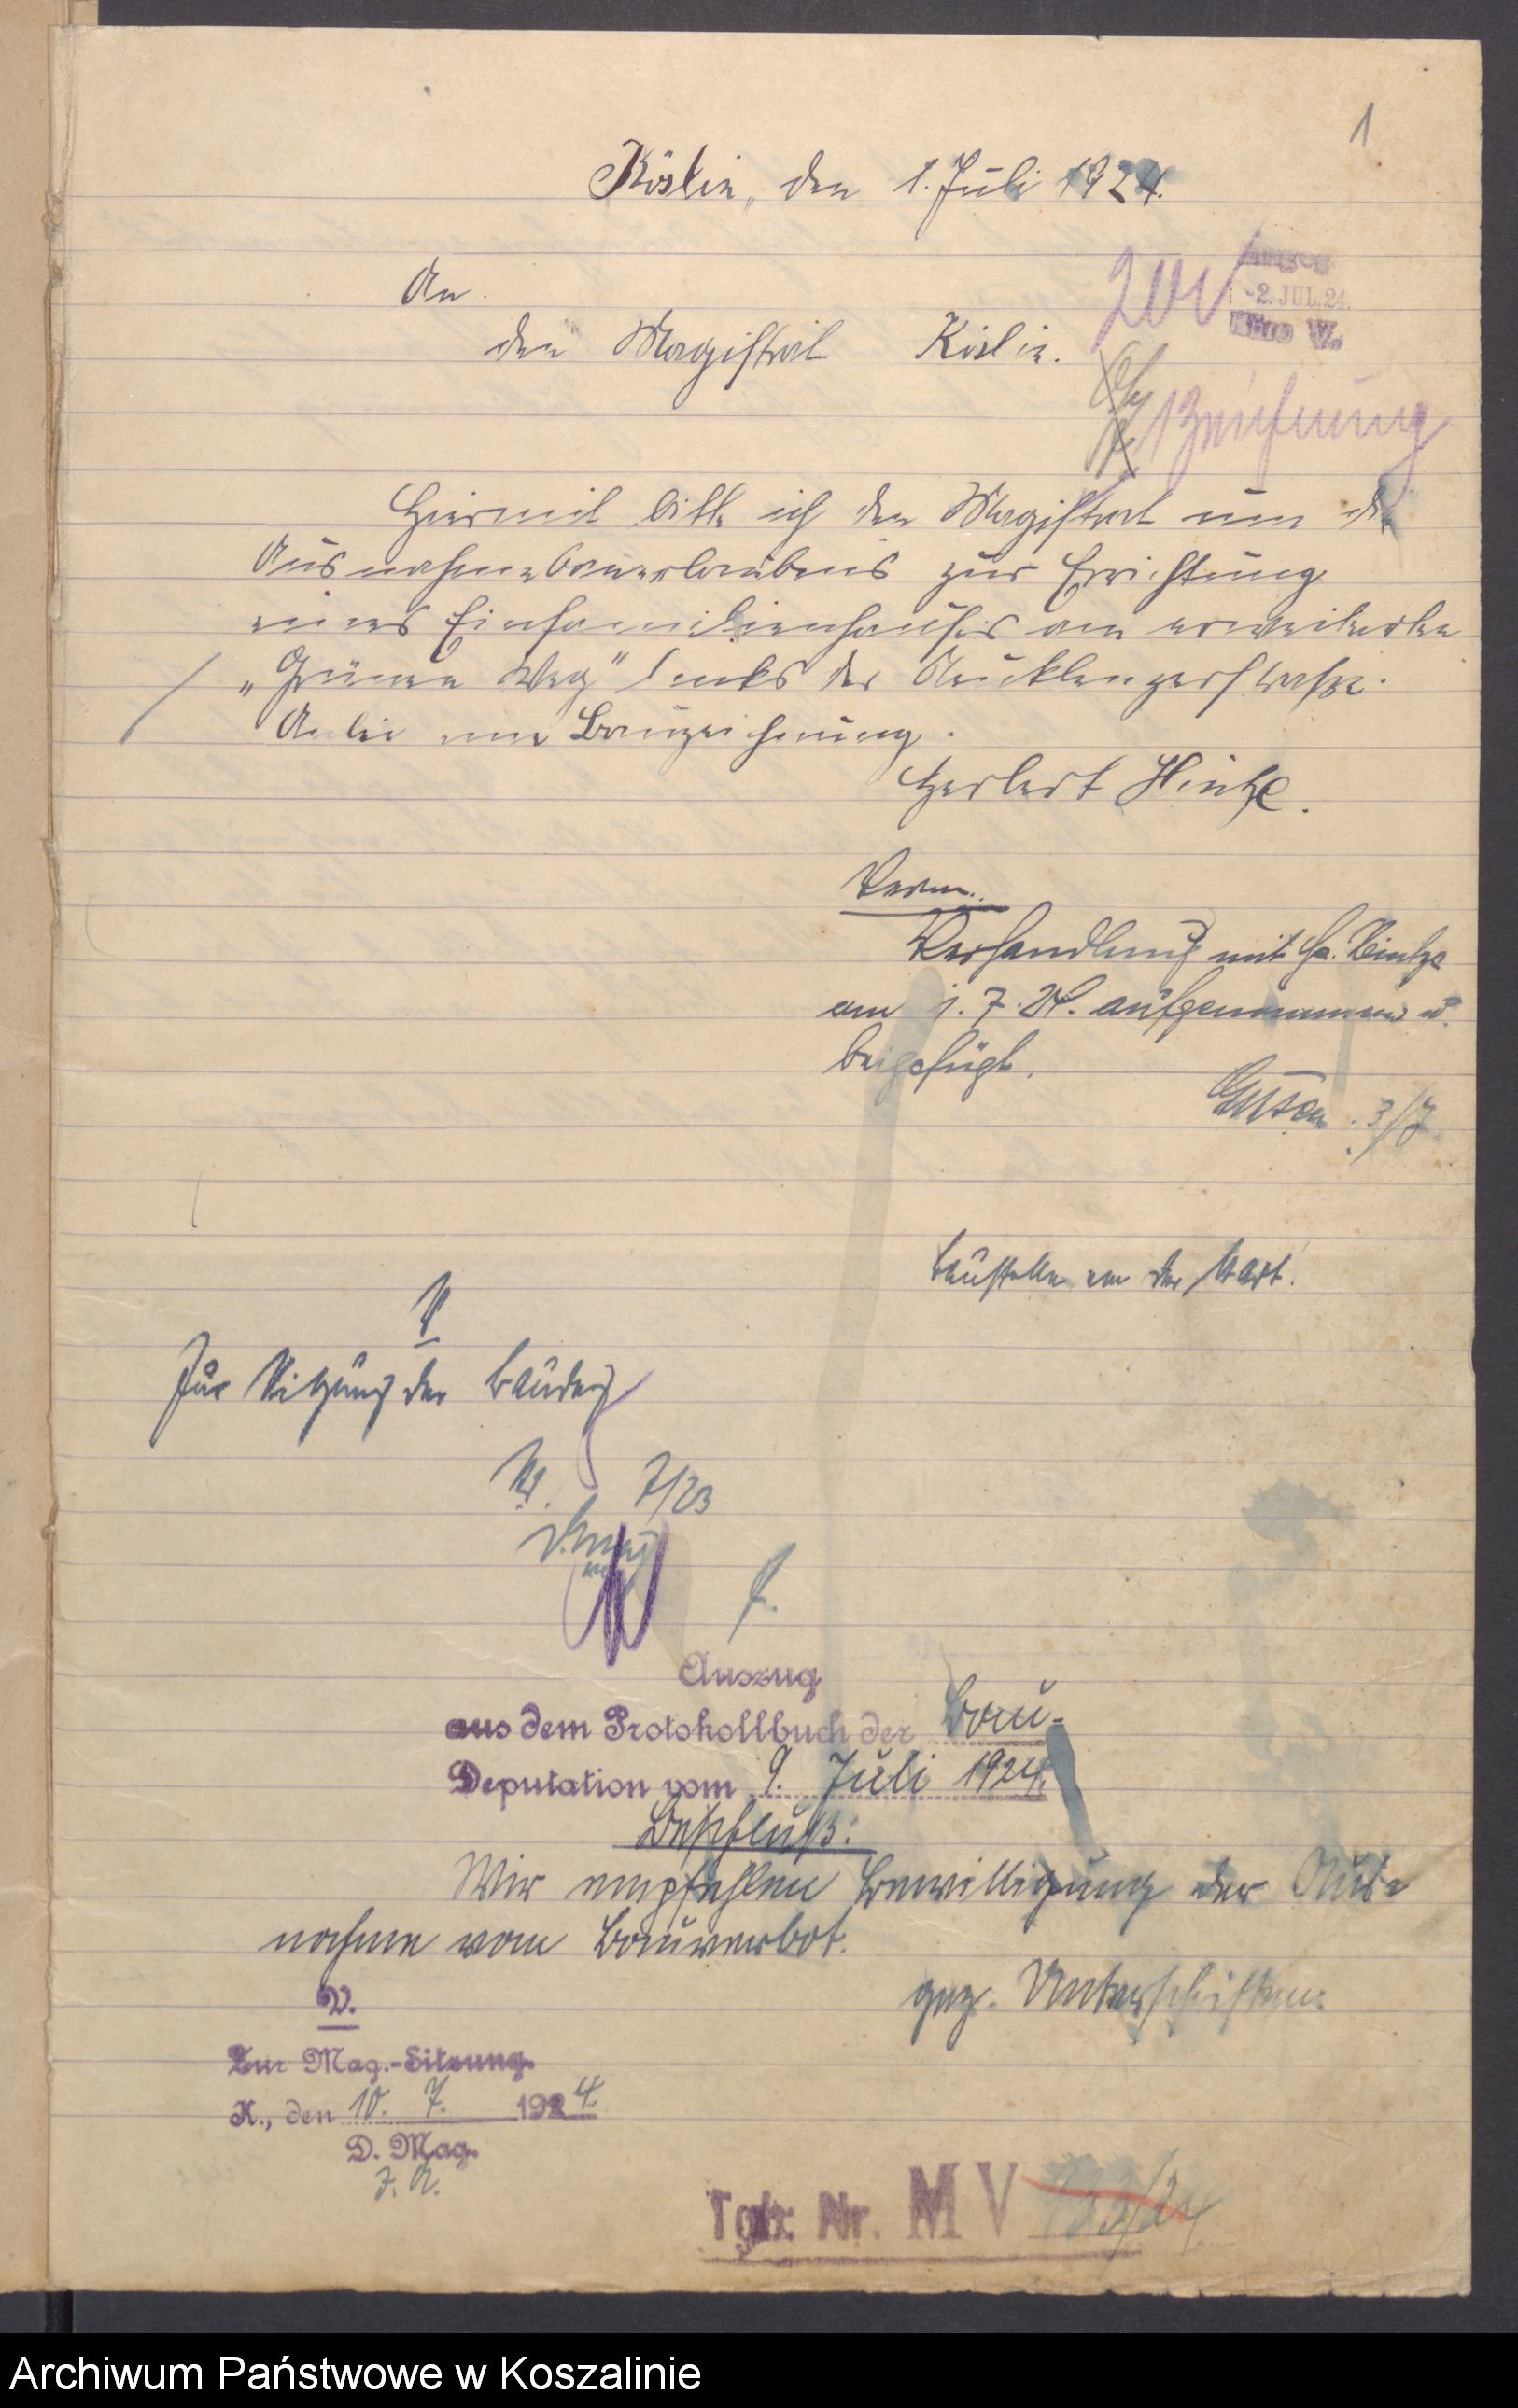 1
Köslin, den 1. Juli 1924.
An
den Magistrat Köslin.
-2. JUL. 24.
1 Zeichnung
Hiermit bitte ich den Magistrat um die
Ausnahmebauerlaubnis zur Errichtung
eines Einfamilienhauses am erweiterten
„Grünen Weg" links der Neuklenzerstraße.
Anbei eine Bauzeichnung.
Herbert Hintze.
Verm.
Verhandlung mit H. Hintze
am 1. 7. 24. aufgenommen u.
beigefügt.
3/7
Baustelle an der
V
Zur Sitzung der Baudep
Auszug
aus dem Protokollbuch der Bau-
Deputation vom 9. Juli 1924.
Beschluß:
Wir empfehlen Bewilligung der Aus-
nahme vom Bauverbot.
gez. Unterschriften.
V.
Zur Mag.-Sitzung.
K., den 10. 7. 1924.
D. Mag.
J. A.
Tgb. Nr. M V
Archiwum Państwowe w Koszalinie